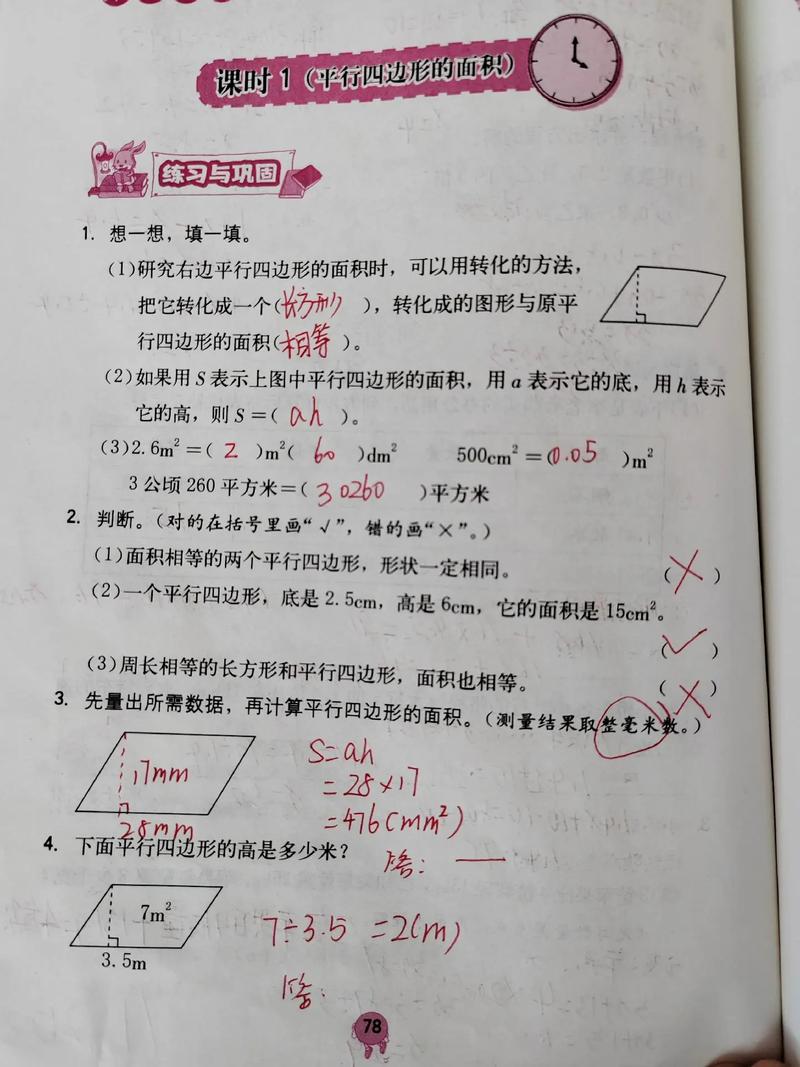 课时 1（平行四边形的面积）
练习与巩固
1. 想一想，填一填。
(1)研究右边平行四边形的面积时，可以用转化的方法，
把它转化成一个(长方形)，转化成的图形与原平
行四边形的面积(相等)。
(2)如果用 S 表示上图中平行四边形的面积，用 a 表示它的底，用 h 表示
它的高，则 S =( ah )。
(3)2.6m²=( 2 )m²( 60 )dm² 500cm²=(0.05 )m²
3 公顷 260 平方米=( 30260 )平方米
2. 判断。(对的在括号里画“√”，错的画“×”。)
(1)面积相等的两个平行四边形，形状一定相同。 (×)
(2)一个平行四边形，底是 2.5cm，高是 6cm，它的面积是 15cm²。
(√)
(3)周长相等的长方形和平行四边形，面积也相等。 (×)
3. 先量出所需数据，再计算平行四边形的面积。(测量结果取整毫米数。)
17mm
28mm
S=ah
=28×17
=476(mm²)
答：——
4. 下面平行四边形的高是多少米？
7m²
3.5m
7÷3.5=2(m)
答：
78